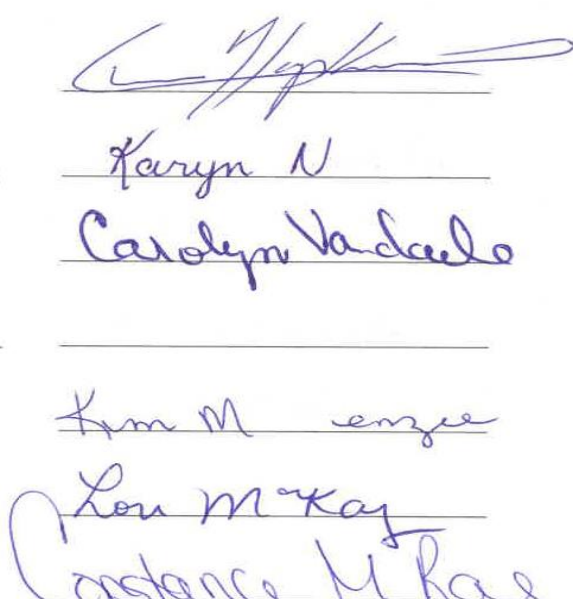 Hopkins
Karyn N
Carolyn Vandaele
Kim M enzie
Lori McKay
Constance M Rae